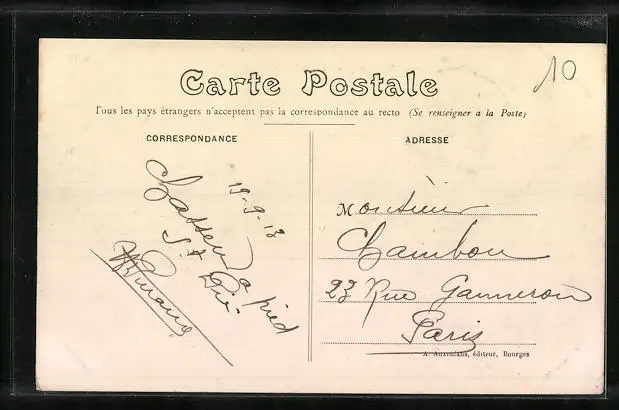 10
Carte Postale
Tous les pays étrangers n'acceptent pas la correspondance au recto (Se renseigner a la Poste)
CORRESPONDANCE
19-9-13
Chasseur à pied
St Dié
ADRESSE
Monsieur
Chambon
23 Rue Ganneron
Paris
A. Auxenfans, éditeur, Bourges